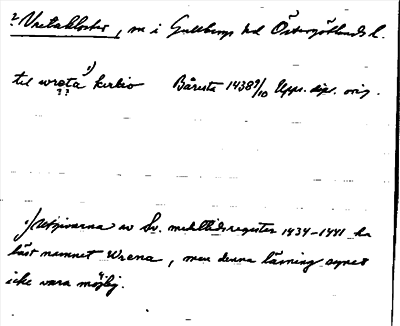 ? Vretakloster, sn i Gullbergs hd Östergötlands l.
til wreta 1) kirkio Båresta 1438 9/10 Upps. dipl. orig.
? ?
1) Utgivarna av Sv. medeltidsregester 1434-1441 ha
läst namnet Wrena, men denna läsning synes
icke vara möjlig.